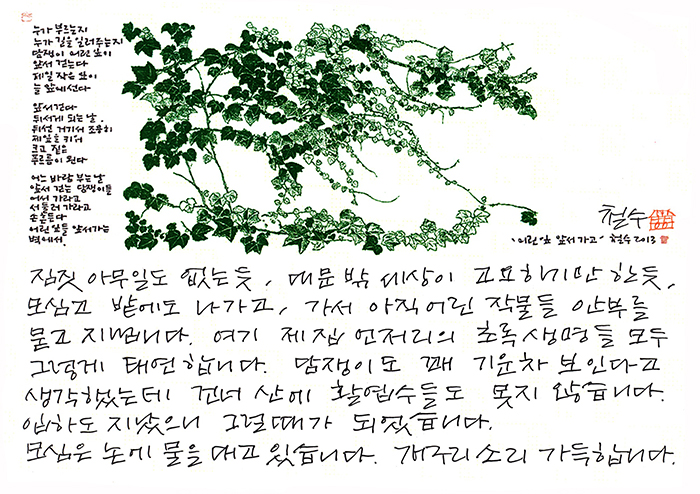 누가 부르는지
누가 길을 일러주는지
담쟁이 어린 잎이
앞서 걷는다
제일 작은 잎이
늘 앞에 선다
앞서 걷다
뒤서게 되는 날.
뒤선 거기서 조용히
제 잎을 키워
크고 짙은
푸르름이 된다
어느 바람 부는 날
앞서 걷는 담쟁이들
어서 가라고
서둘러 가라고
손 흔든다
어린 잎들 앞서가는
벽에서.
철수
'어린 잎 앞서 가고' 철수 2013
짐짓 아무일도 없는듯, 대문 밖 세상이 고요하기만 한듯,
모심고 밭에도 나가고, 가서 아직 어린 작물들 안부를
묻고 지냅니다. 여기 제 집 언저리의 초록 생명들 모두
그렇게 태연합니다. 담쟁이도 꽤 기운차 보인다고
생각했는데 건너 산에 활엽수들도 못지 않습니다.
입하도 지났으니 그럴때가 되었습니다.
모심은 논에 물을 대고 있습니다. 개구리소리 가득합니다.